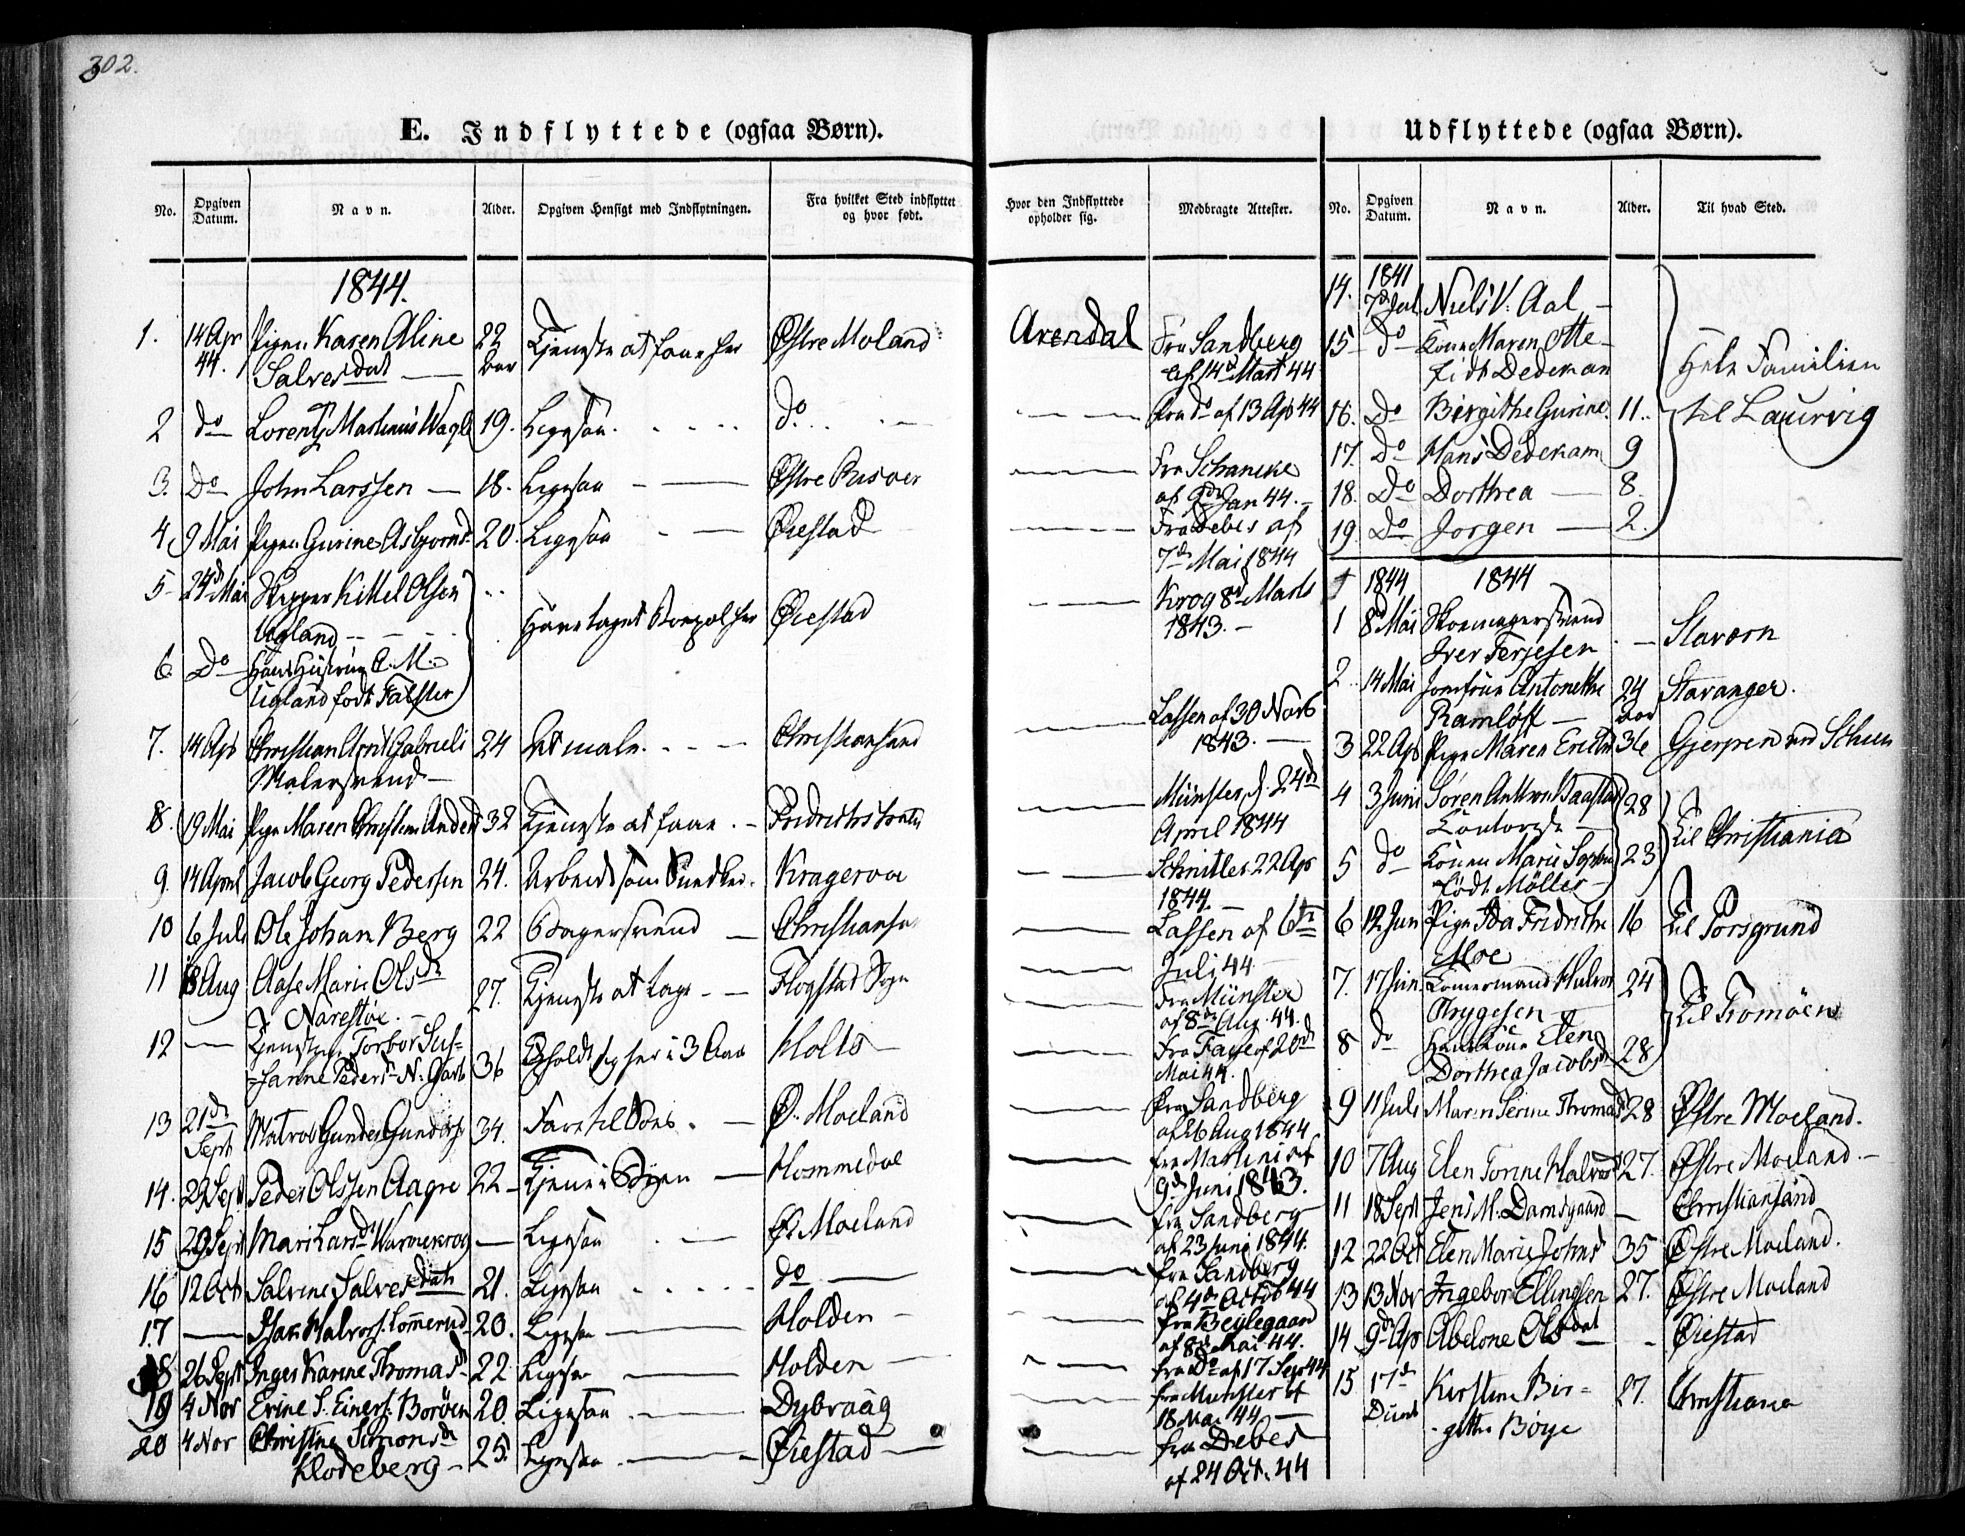 302.
E. Indflyttede (ogsaa Børn).
No.
Opgiven Datum.
Navn.
Alder.
Opgiven Hensigt med Indflytningen.
Fra hvilket Sted indflyttet og hvor født.
1844.
1. 14 Apr 44. Pigen Karen Aline 22 Tjeneste at faae her Østre Moland
Salvesdat
2 do Lorentz Martinus 19. Ligesaa do
3. Do John Larssen 18. Ligesaa Østre Risøer
4 9 Mai Pigen Gurine Asbjørnsd 20. Ligesaa Øiestad
5 24d Mai Skipper Kittel Olsen Øiestad
Ugland
6 Do Hans Hustrue A. M.
Ugland født Falster
7. 14 Apr Christian Gabrieli 24 At male Christiansand
Malersvend
8. 19 Mai Pige Maren Anders 32 Tjeneste at faae
9. 14 April Jacob Georg Pedersen 24. Arbeide som Snedker Kragerøe
10 6 Juli Ole Johan Berg 22 Bagersvend
11 8 Aug Aase Marie Olsdr 27. Tjeneste at tage
Narestøe
12 Torbor Su=
=sanne Peders 36 i 3 Aar Holt
13 21d Sept Matros Gunder 34. Fare til Søes Ø. Moeland
14. 29 Sept Peder Olssen Aagre 22 Tjene i Byen Hommedal
15 29 Sept Mari Larsd Ligesaa Ø. Moeland
16 12 Oct Salvine Salvesdatr 21. Ligesaa do
17 Isak Halvors. 20. Ligesaa Holden
18 26 Sept Inger Karine Thomasd 22 Ligesaa Holden
19 4 Nov Erine S. Einers. Borøen 20. Ligesaa Dybvaag
20 4 Nov Christine Simonsdr 25. Ligesaa Øiestad
Klodeberg
Hvor den Indflyttede opholder sig.
Medbragte Attester.
Arendal
Fra Sandberg
af 14d Marts 44
fra do af 13 Apr 44
Fra Schancke
af 9de Jan 44.
Fra Debes af
7de Mai 1844
Krog 8d Marts
1843.
Lassen af 30 Novb
1843.
Münster d. 24de
April 1844
Schnitler 22 Apr
1844.
Lassen af 6te
Juli 44
Fra Münster
af 8de Aug. 44.
Fra Faye af 20de
Mai 44.
Fra Sandberg
af 26 Aug 1844
fra Martini af
9de Juni 1843.
fra Sandberg
af 23 Juni 1844.
fra Sandberg
af 4de Octob 44
fra Beylegaard
af 8de Mai 44.
fra Do af 17 Sept 44
fra Munster af
18 Mai 44
fra Debes
af 24 Oct. 44
Udflyttede (ogsaa Børn).
No.
Opgiven Datum.
Navn.
Alder.
Til hvad Sted.
1841
14. 7de Jul Niels V. Aal
15 do Konen Maren Otte=
født Dedekam
16. Do Birgithe Gurine 11.
17. Do Hans Dedekam 9
18. Do Dorthea 8.
19. Do Jørgen 2.
Hele Familien
til Laurvig
1844 1844
1 8d Mai Skomagersvend
Iver Terjesen Stavern
2. 14 Mai Jomfrue Antonethe 24 Aar Stavanger.
Ramløff
3 22 Apr Pige Maren 36 Gjerpen ved Schien
4 3 Juni Søren Anthon 28
Til Christiania
5 do Konen Marie Sophie 23
født Möller
6 12 Jun Pige Ida Fridrikke 16 Til Porsgrund
Moe
7. 17 Jun Tømermand Halvor 24
Thrygesen
Til Tromøen
8 do Hans Kone Elen
Dorthea Jacobsd 28
9 11 Juli Maren Serine Thomasd 28 Østre Moeland.
10 7 Aug Elen Torine Halvorsd 27. Østre Moeland.
11 18 Sept Jens M. Damsgaard Christiansand
12 22 Oct Elen Marie Johnsd 35 Østre Moeland.
13 13 Nov Ingebor Ellingsen 27. Østre Moeland
14 9de Apr Abelone Olsdat Øiestad
15 17de Kirstine Bir=
-gitte Bøye 27. Christiania